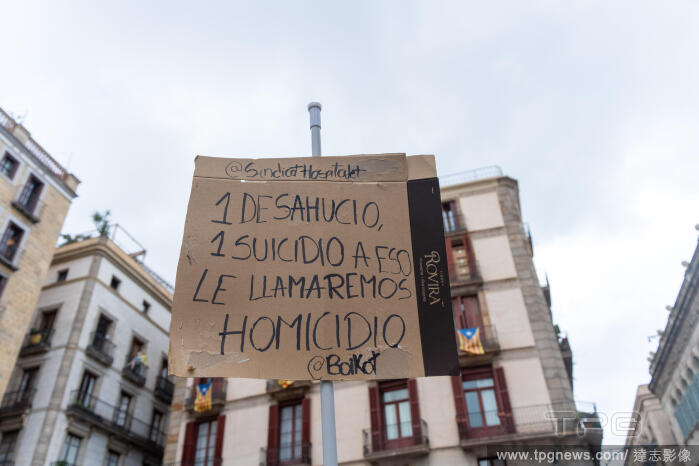 @SindicatHospitalet
1 DESAHUCIO,
1 SUICIDIO A ESO
LE LLAMAREMOS
HOMICIDIO
@Boikot
ROVIRA
TPG
www.tpgnews.com/達志影像